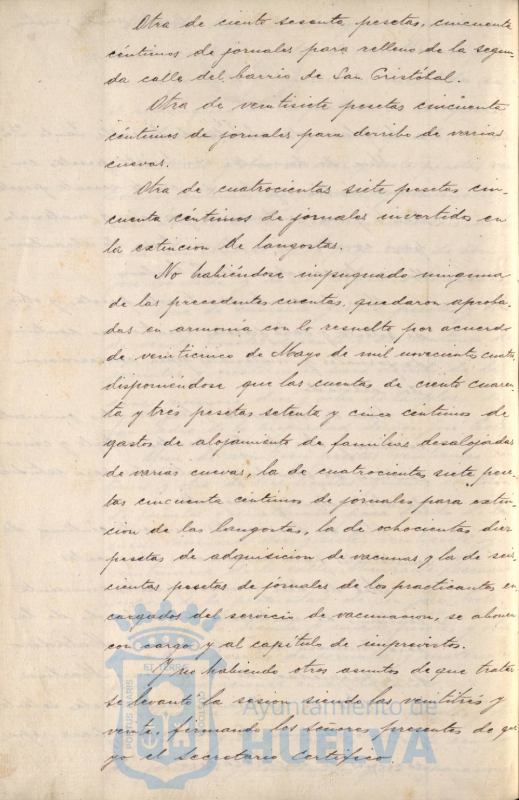 Otra de ciento sesenta pesetas, cincuenta
céntimos de jornales para relleno de la segun-
da calle del barrio de San Cristóbal.
Otra de veintisiete pesetas cincuenta
céntimos de jornales para derribo de varias
cuevas.
Otra de cuatrocientas siete pesetas cin-
cuenta céntimos de jornales invertidos en
la extinción de langostas.
No habiéndose impugnado ninguna
de las precedentes cuentas, quedaron aproba-
das en armonía con lo resuelto por acuerdo
de veinticinco de Mayo de mil novecientos cuatro
disponiéndose que las cuentas de ciento cuaren-
ta y tres pesetas setenta y cinco céntimos de
gastos de alojamiento de familias desalojadas
de varias cuevas, la de cuatrocientas siete pese-
tas cincuenta céntimos de jornales para extin-
cion de las langostas, la de ochocientas diez
pesetas de adquisicion de vacunas y la de seis-
cientas pesetas de jornales de los practicantes en-
cargados del servicio de vacunacion, se abonen
con cargo y al capítulo de imprevistos.
Y no habiendo otros asuntos de que tratar
se levantó la sesion siendo las veintitrés y
veinte, firmando los señores presentes de que
yo el secretario certifico.
PORTUS MARIS
ET TERRE
CUSTODIA
Ayuntamiento de
HUELVA